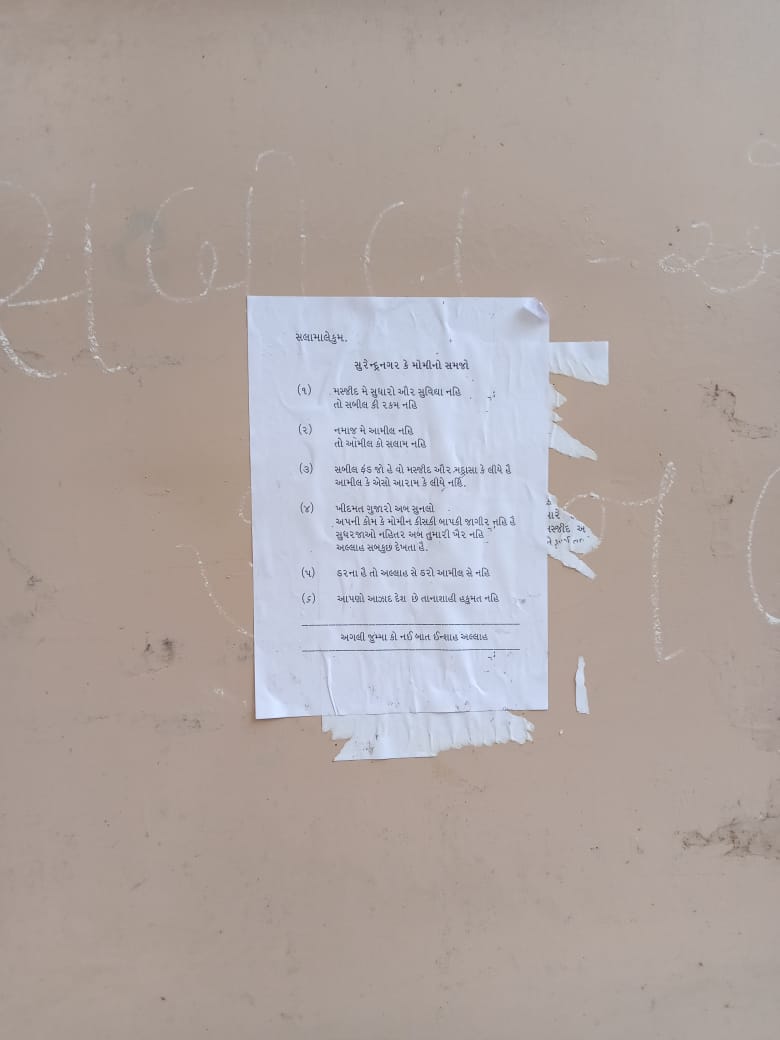 સલામાલેકુમ.
સુરેન્દ્રનગર કે મોમીનો સમજો
(૧) મસ્જીદ મે સુધારો ઔર સુવિધા નહિ
તો સબીલ કી રકમ નહિ
(૨) નમાજ મે આમીલ નહિ
તો આમીલ કો સલામ નહિ
(૩) સબીલ ફંડ જો હે વો મસ્જીદ ઔર મદ્રાસા કે લીયે હૈ
આમીલ કે એસો આરામ કે લીયે નહિ.
(૪) ખીદમત ગુજારો અબ સુનલો
અપની કોમ કે મોમીન કીસકી બાપકી જાગીર નહિ હૈ
સુધરજાઓ નહિતર અબ તુમારી ખૈર નહિ
અલ્લાહ સબકુછ દેખતા હૈ.
(૫) ડરના હૈ તો અલ્લાહ સે ડરો આમીલ સે નહિ
(૬) આપણો આઝાદ દેશ છે તાનાશાહી હકુમત નહિ
અગલી જુમ્મા કો નઈ બાત ઈન્શાહ અલ્લાહ
મસ્જીદ અ